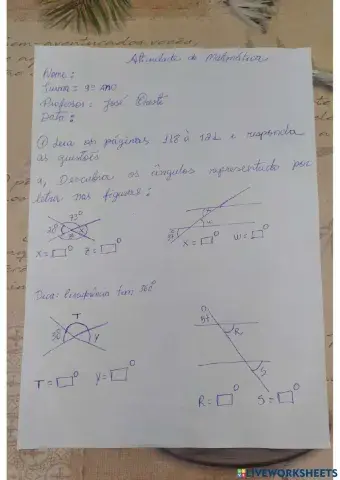 Atividade de Matemática
Nome:
Turma = 9º ANO
Professor: José
Data:
① Leia as páginas 118 à 121 e responda
as questões
a, Descubra os ângulos representado por
letra nas figuras:
73º
28º
X = º Z = º
X = º W = º
Dica: circunferência tem: 360º
T
Y
T = º Y = º
R
S
R = º S = º
LIVEWORKSHEETS